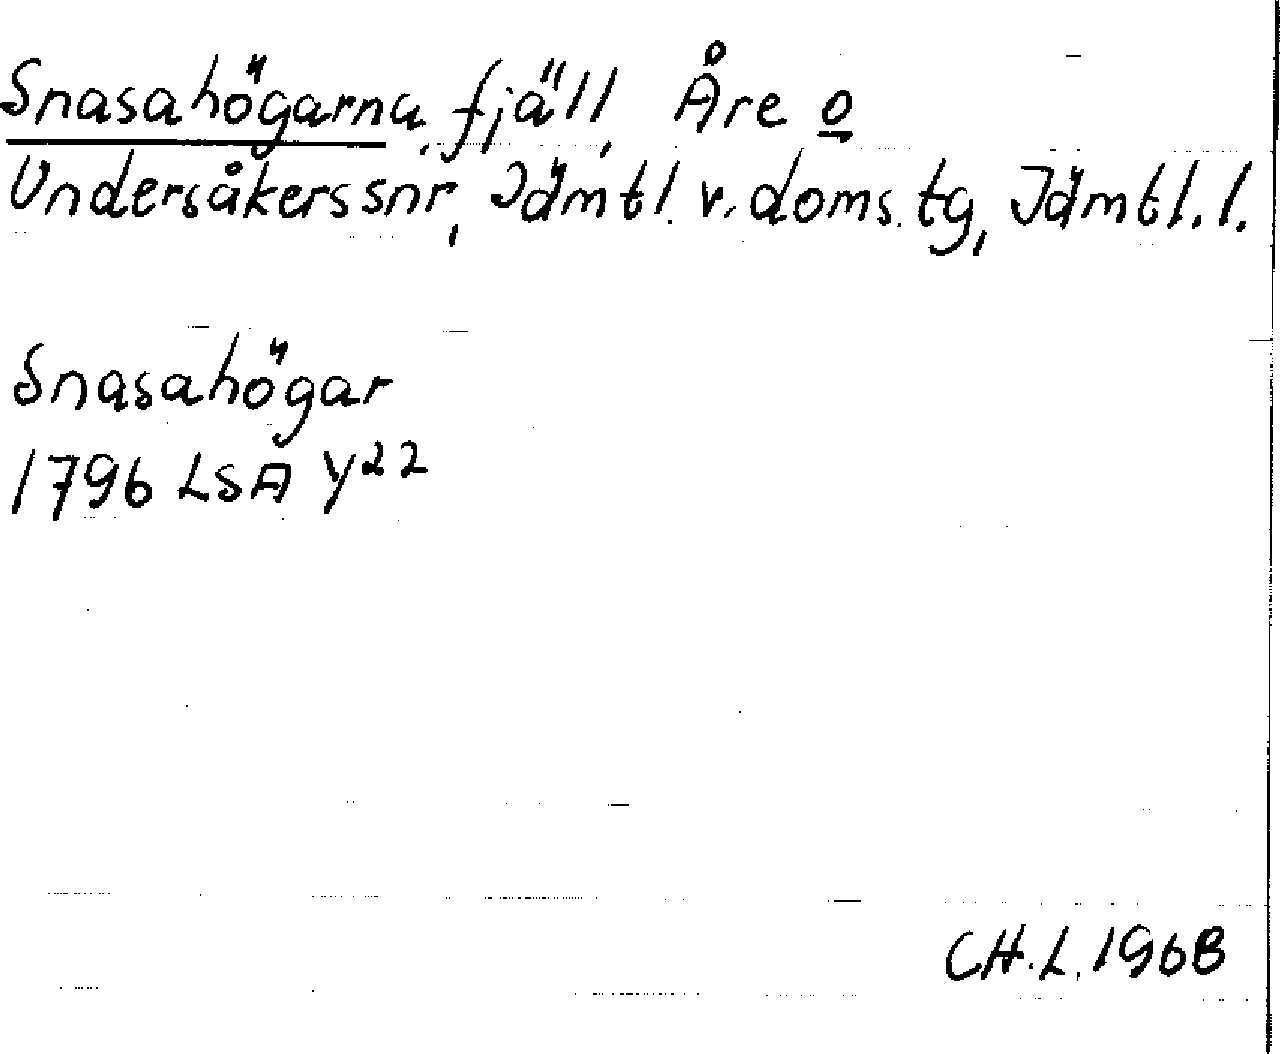 Snasahögarna, fjäll, Åre o
Undersåkers snr, Jämtl. v. doms. tg, Jämtl. l.
Snasahögar
1796 LSA Y22
CH. L. 1968